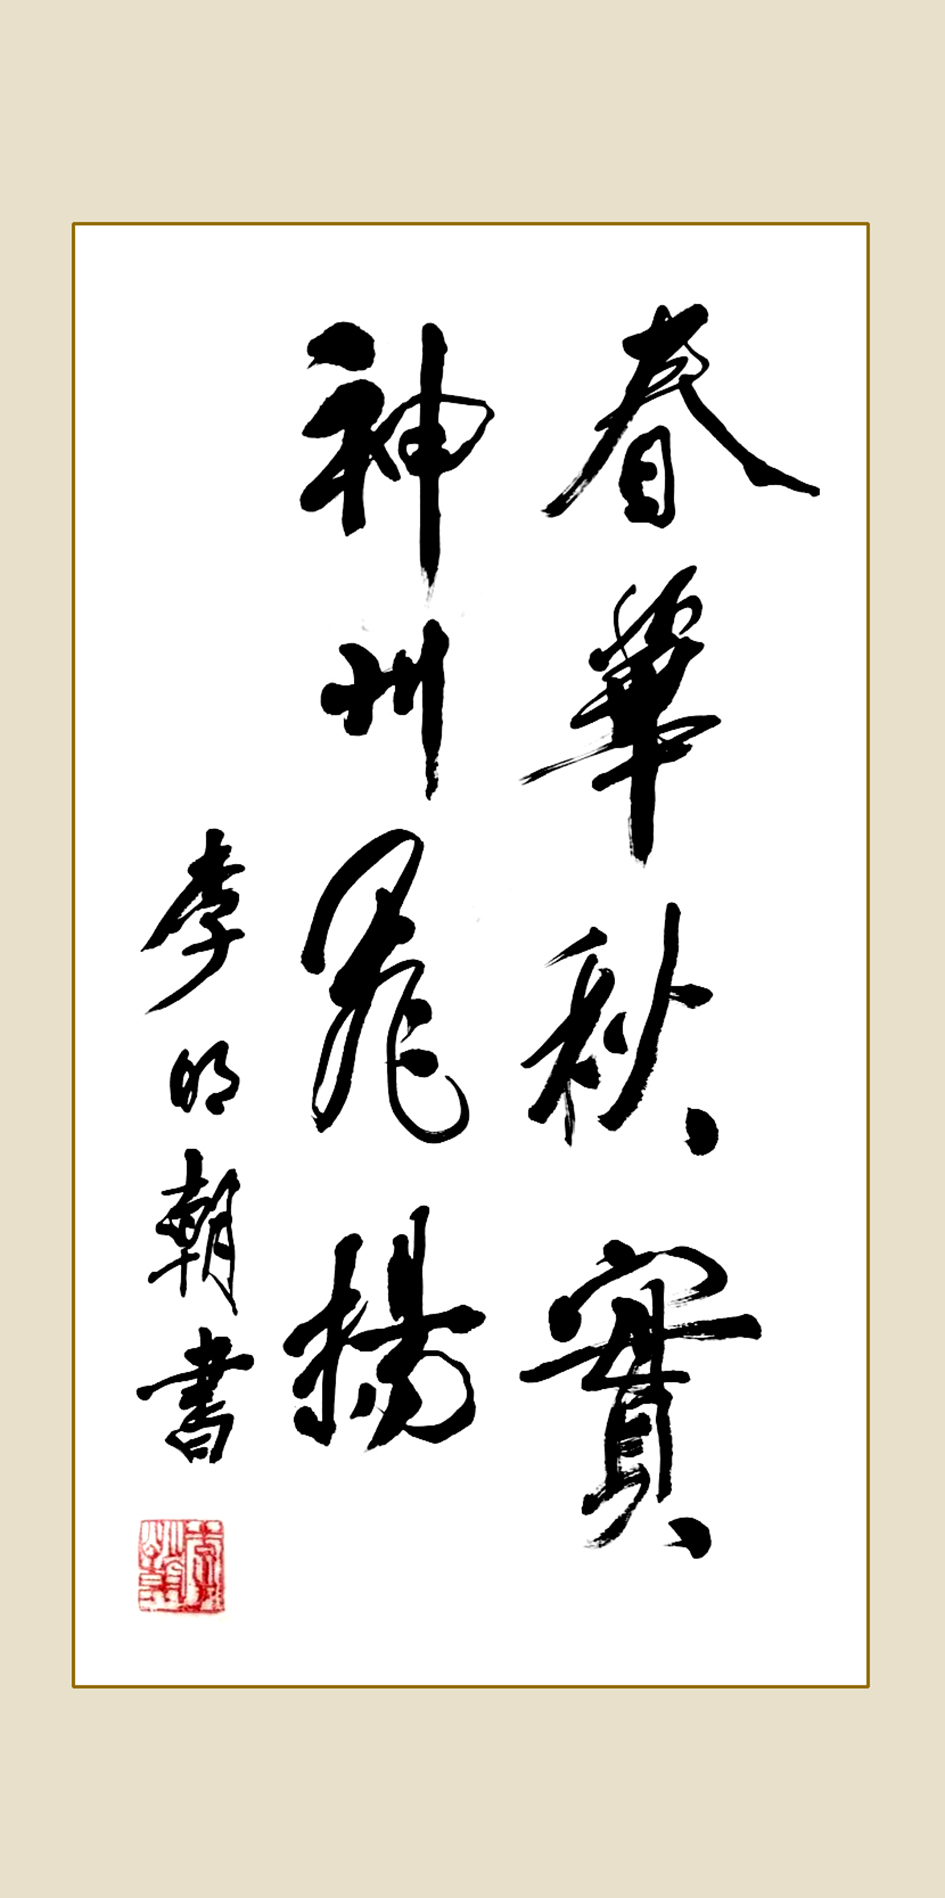 春華秋實
神州飛揚
李明朝書